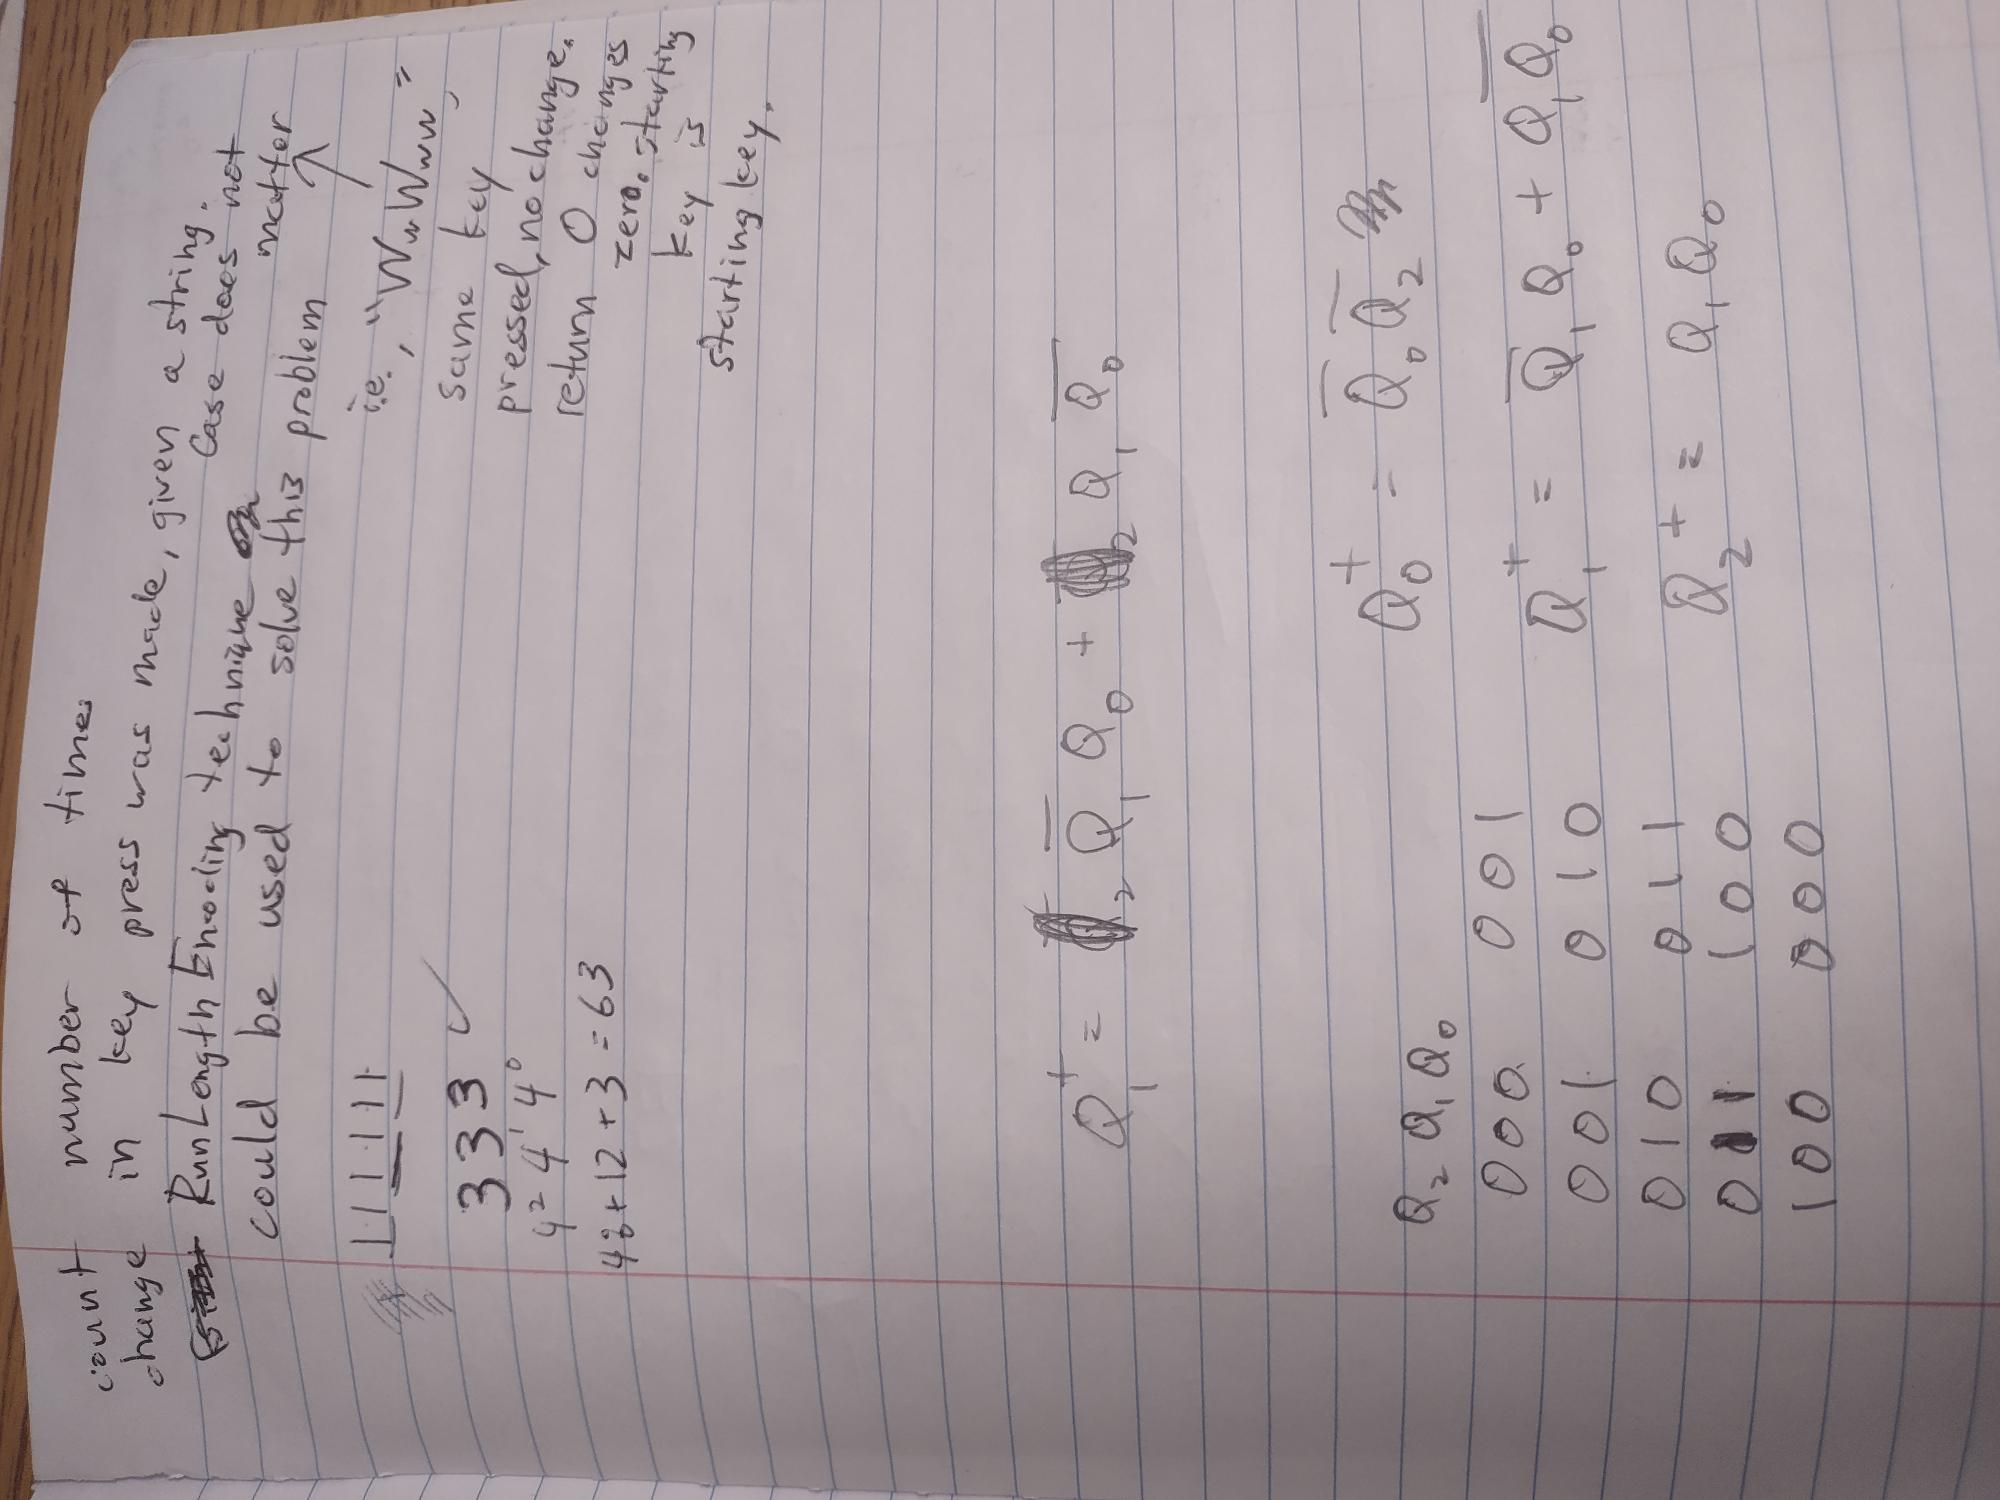 count number of times
change in key press was made, given a string.
RunLength Encoding technique
could be used to solve this problem
Case does not
matter
i.e., "WwWww,"
same key
pressed, no change.
return 0 changes
zero. starting
key is
starting key.
111111
333 ✓
4² 4¹ 4⁰
48 + 12 + 3 = 63
Q₁⁺ = Q̅₁ Q₀ + Q₁ Q̅₀
Q₂ Q₁ Q₀
000 001
001 010
010 011
011 100
100 000
Q₀⁺ = Q̅₀ Q̅₂
Q₁⁺ = Q̅₁ Q₀ + Q₁ Q̅₀
Q₂⁺ = Q₁ Q₀